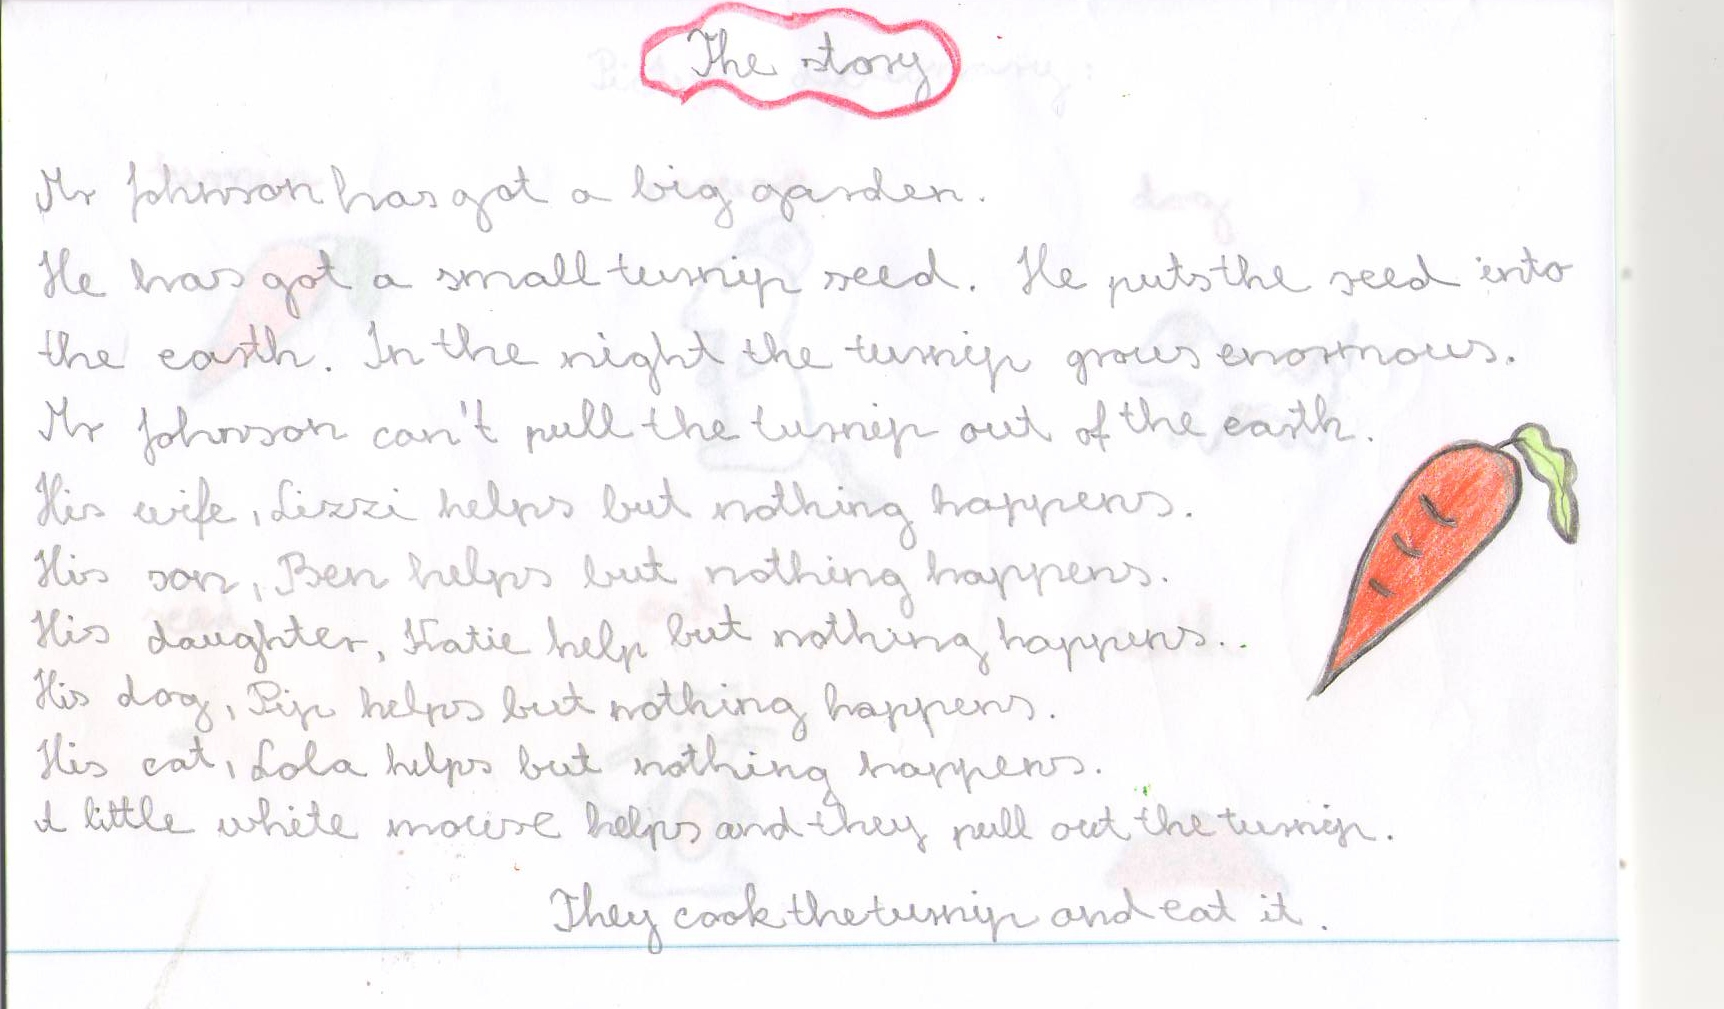 The story
Mr Johnson has got a big garden.
He has got a small turnip seed. He puts the seed into
the earth. In the night the turnip grows enormous.
Mr Johnson can't pull the turnip out of the earth.
His wife, Lizzi helps but nothing happens.
His son, Ben helps but nothing happens.
His daughter, Katie help but nothing happens..
His dog, Pip helps but nothing happens.
His cat, Lola helps but nothing happens.
A little white mouse helps and they pull out the turnip.
They cook the turnip and eat it.